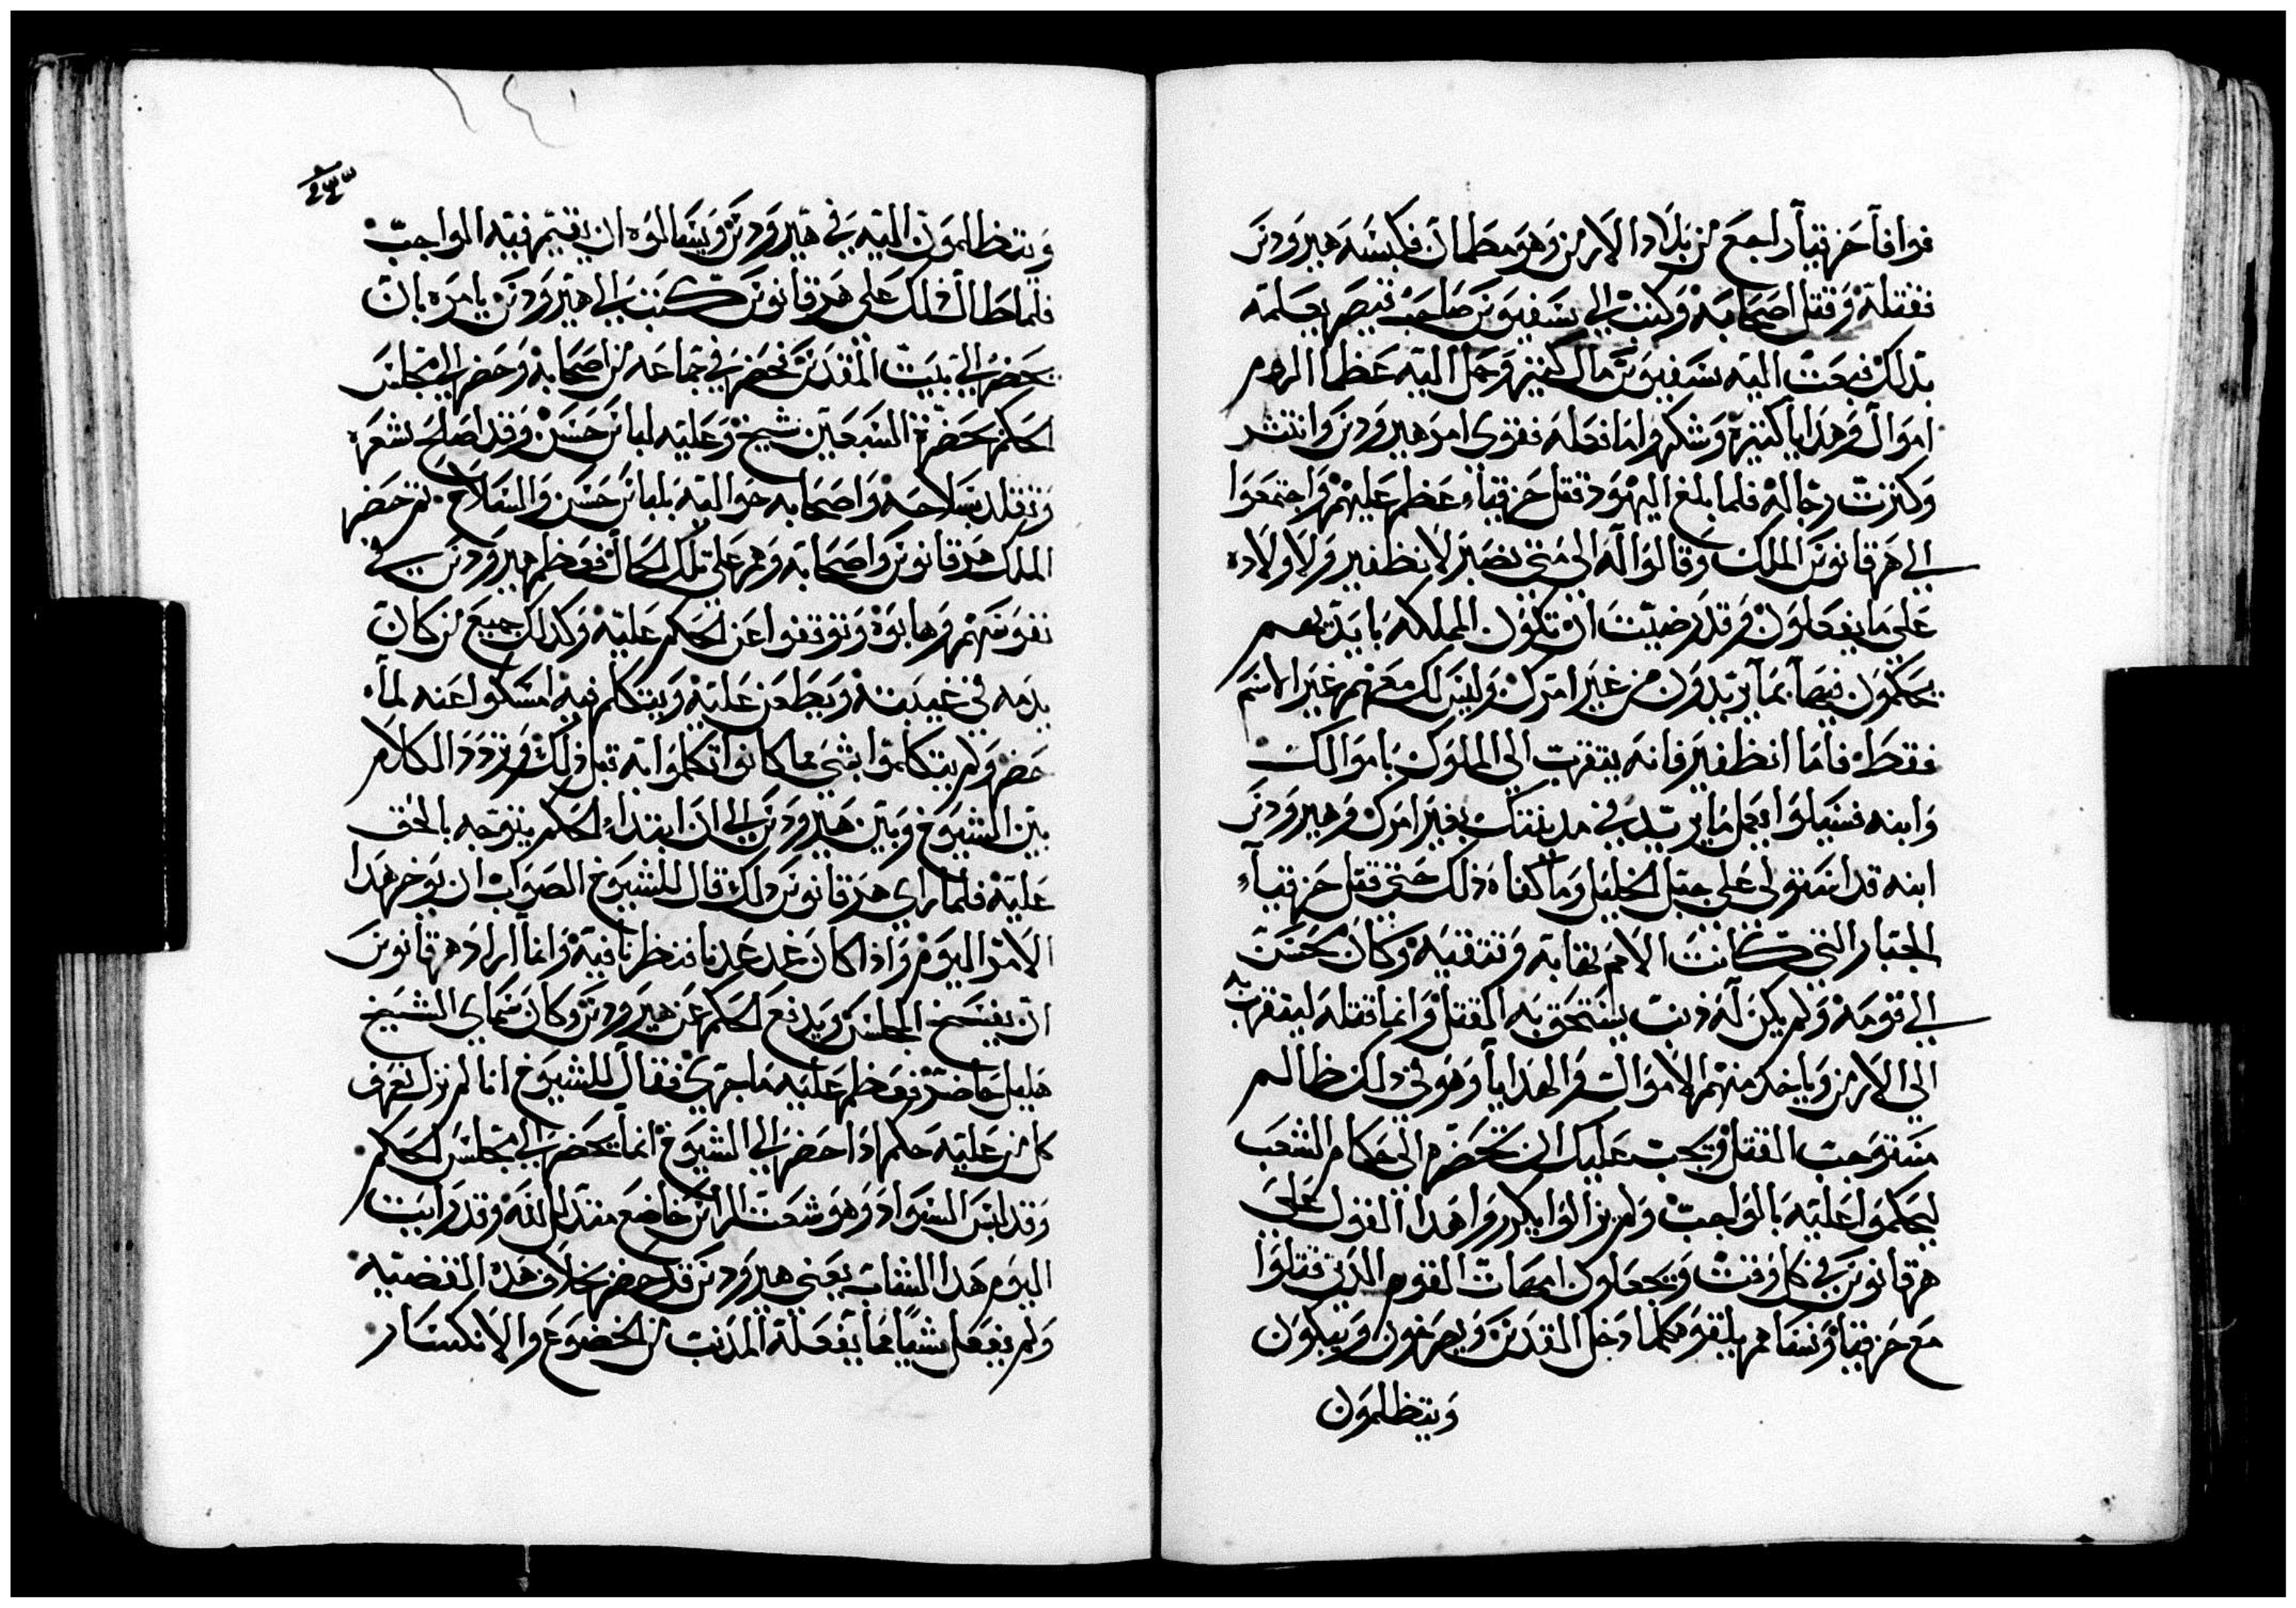 فوافا حزقيا راجع من بلاد الارمن وهو مطمان فكبسه هيرودس
فقتله وقتل اصحابه وكتب الي سفيوس صاحب قيصر يعلمه
بذلك فبعت اليه سفيوس مال كثير وحمل اليه عظما الروم
اموال وهدايا كثيرة وشكروا ما فعله فقوي امر هيرودس وانتشر
وكثرت رجاله فلما بلغ اليهود قتل حزقيا عظم عليهم واجتمعوا
الي هرقانوس الملك وقالوا له الي متي تصبر لانظفير ولاولاده
علي ما يفعلون وقد رضيت ان تكون المملكه بايديهم
يحكمون فيها بما يريدون من غير امرك وليس لك معهم غير الاسم
فقط فاما انظفير فانه يتقرب الي الملوك باموالك
وابنه فسيلوا يعمل ما يريد في مدينتك بغير امرك وهيرودس
ابنه قد استولي علي جبل الخليل وما كفاه ذلك حتي قتل حزقيا
الجبار التي كانت الامم تهابه وتتقيه وكان محسن
الي قومه ولم يكن له ذنب يستحق به القتل وانما قتله ليتقرب
الي الارمن وياخذ منهم الاموال والهدايا وهو في ذلك ظالم
مستوجب القتل ويجب عليك ان تحضره الي حكام الشعب
ليحكموا عليه بالواجب ولم يزالوا يكرروا هذا القول علي
هرقانوس في كل وقت ويجعلون امهات القوم الذي قتلوا
مع حزقيا ونساهم يلقوه كلما دخل القدس ويصرخون ويبكون
ويتظلمون
٢٣٣
ويتظلمون اليه في هيرودس ويسالوه ان يقيم فيه الواجب
فلما طال ذلك علي هرقانوس كتب الي هيرودس يامره بان
يحضر الي بيت المقدس فحضر في جماعه من اصحابه وحضر الي مجلس
الحكم بحضرة السبعين شيخ وعليه لباس حسن وقد اصلح شعره
وتقلد بسلاحه واصحابه حواليه بلباس حسن والسلاح ثم حضر
الملك هرقانوس واصحابه وهم علي تلك الحال فعظم هيرودس في
نفوسهم وهابوه وتوقفوا عن الحكم عليه وكذلك جميع من كان
يذمه في غيبته ويطعن عليه ويتكلم فيه امسكوا عنه لما
حضر ولم يتكلموا بشي مما كانوا تكلموا به قبل ذلك وتردد الكلام
بين الشيوخ وبين هيرودس الي ان ابتدا الحكم يتوجه بالحق
عليه فلما راي هرقانوس ذلك قال للشيوخ الصواب ان يوخر هذا
الامر اليوم واذا كان غد عدنا فنظرنا فيه وانما اراد هرقانوس
ان يفسخ المجلس ويدفع الحكم عن هيرودس وكان شماي الشيخ
هليل حاضر فعظم عليه ما جري فقال للشيوخ انا لم نزل نعرف
كل من عليه حكم اذا حضر الي الشيوخ انما يحضر الي مجلس الحكم
وقد لبس السواد وهو شعت الراس خاضع متذلل لله وقد رايت
اليوم هذا الشاب يعني هيرودس قد حضر بخلاف هذه القضيه
ولم يفعل شيا مما يفعله المذنب من الخضوع والانكسار